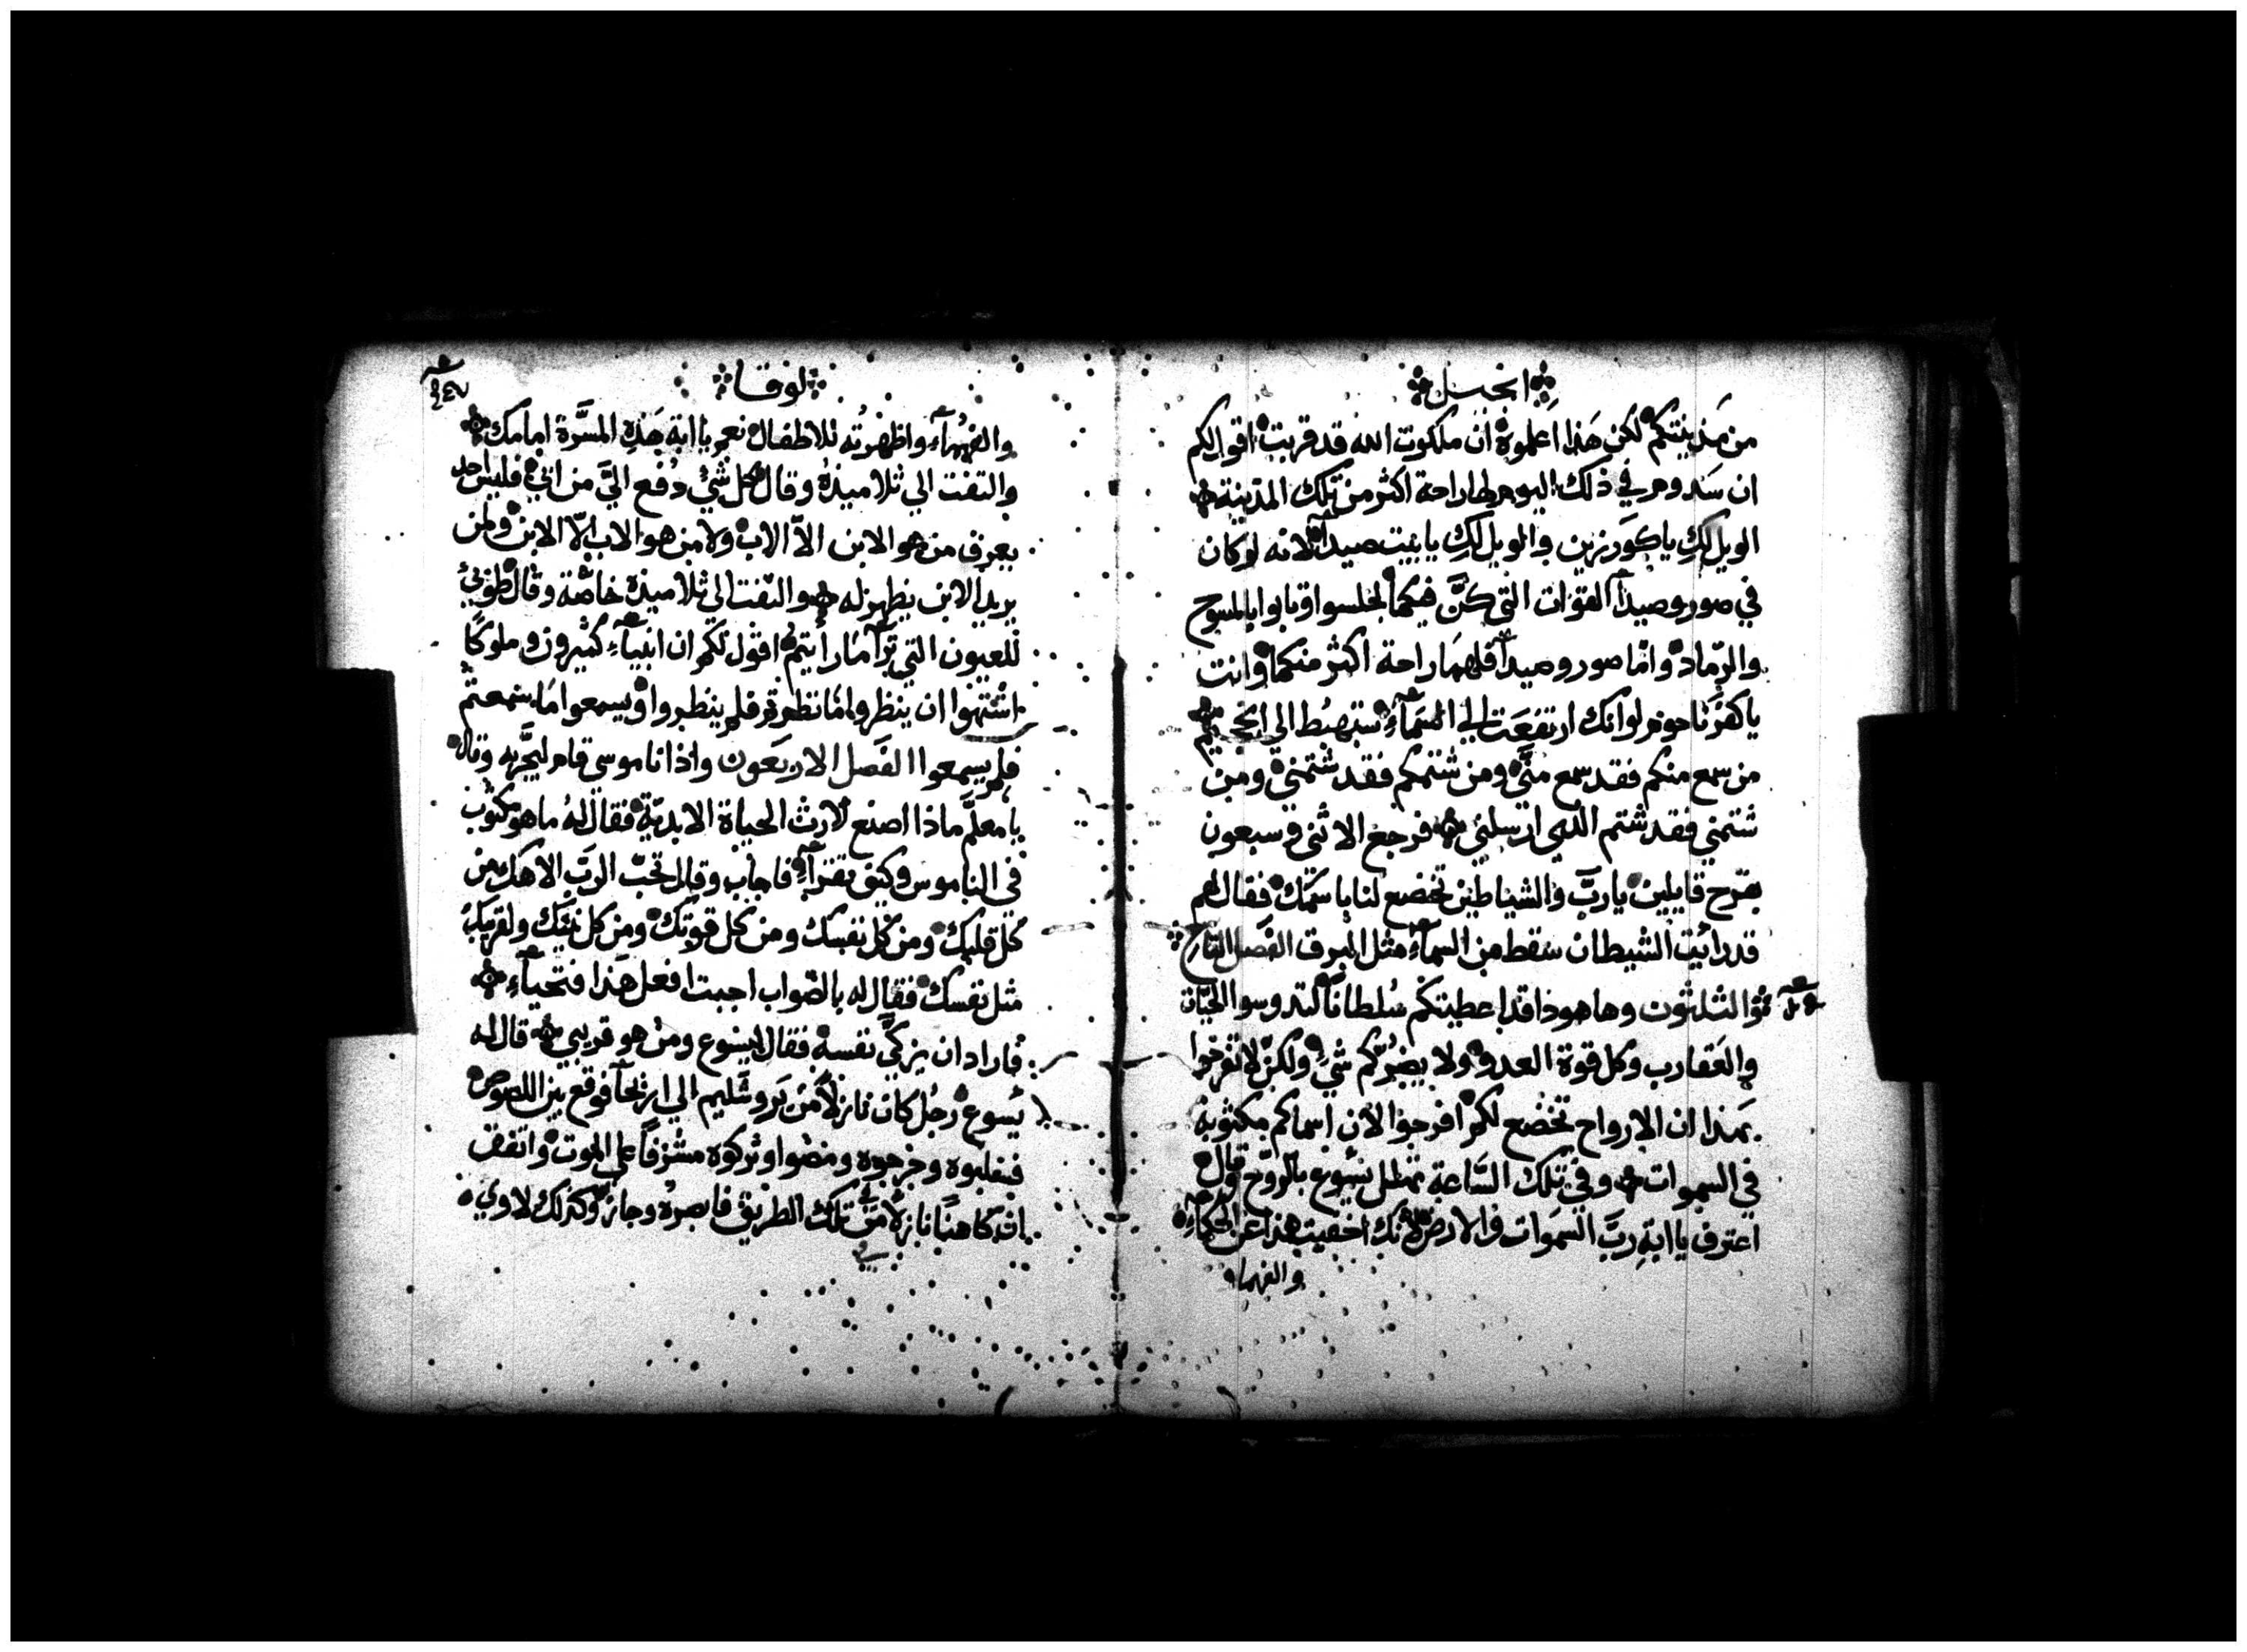 انجيل
من مدينتكم لكن هذا اعلموه ان ملكوت الله قد قربت اقول لكم
ان سدوم في ذلك اليوم لها راحة اكثر من تلك المدينة
الويل لكِ يا كورزين والويل لكِ يا بيت صيدا لانه لو كان
في صور وصيدا القوات التي كنَّ فيكما لجلسوا وتابوا بالمسوح
والرّماد وامّا صور وصيدا فلهما راحة اكثر منكما وانت
يا كفرناحوم لو انك ارتفعت الي السماء ستهبط الي الجحيم
من سمع منكم فقد سمع منّي ومن شتمكم فقد شتمني ومن
شتمني فقد شتم الذي ارسلني فرجع الاثني وسبعون
بفرح قايلين يا ربّ والشياطين تخضع لنا باسمك فقال لهم
قد رائيت الشيطان سقط من السماء مثل البرق الفصل التاسع
والثلثون وها هوذا قد اعطيتكم سلطاناً لتدوسوا الحيّات
والعقارب وكل قوة العدو ولا يضرّكم شيء ولكن لا تفرحوا
بهذا ان الارواح تخضع لكم افرحوا الان اسماكم مكتوبة
في السموات وفي تلك السّاعة تهلل يسوع بالروح وقال
اعترف يا ابةِ ربَّ السموات والارض لانك اخفيت هذا عن الحكماء
والفهما
لوقا
والفهماء واظهرته للاطفال نعم يا ابة هذه المسرّة امامك
والتفت الي تلاميذه وقال كل شيء دُفع اليَّ من ابي فليس احد
يعرف من هو الابن الاّ الاب ولا من هو الاب الاّ الابن ولمن
يريد الابن يظهر له والتفت الي تلاميذه خاصّة وقال طوبي
للعيون التي ترا ما رأيتم اقول لكم ان انبياء كثيرون وملوكًا
اشتهوا ان ينظروا ما نظرتم فلم ينظروا ويسمعوا ما سمعتم
فلم يسمعوا الفصل الاربعون واذا ناموسي قام ليجّربه وقال
يا معلّم ماذا اصنع لارث الحياة الابديّة فقال له ما هو مكتوب
في الناموس وكيف تقراء فاجاب وقال تحبّ الربّ الاهك من
كل قلبك ومن كل نفسك ومن كل قوتك ومن كل نيتك ولقريبك
مثل نفسك فقال له بالصّواب اجبت افعل هذا فتحياء
فاراد ان يزكّي نفسه فقال ليسوع ومن هو قريبي قال له
يسوع رجُل كان نازلاً من يروشليم الي اريحا فوقع بين اللصوص
فسلبوه وجرحوه ومضوا وتركوه مشرفاً علي الموت واتفق
ان كاهنًا نازلاً في تلك الطريق فابصره وجاز وكذلك لاوي